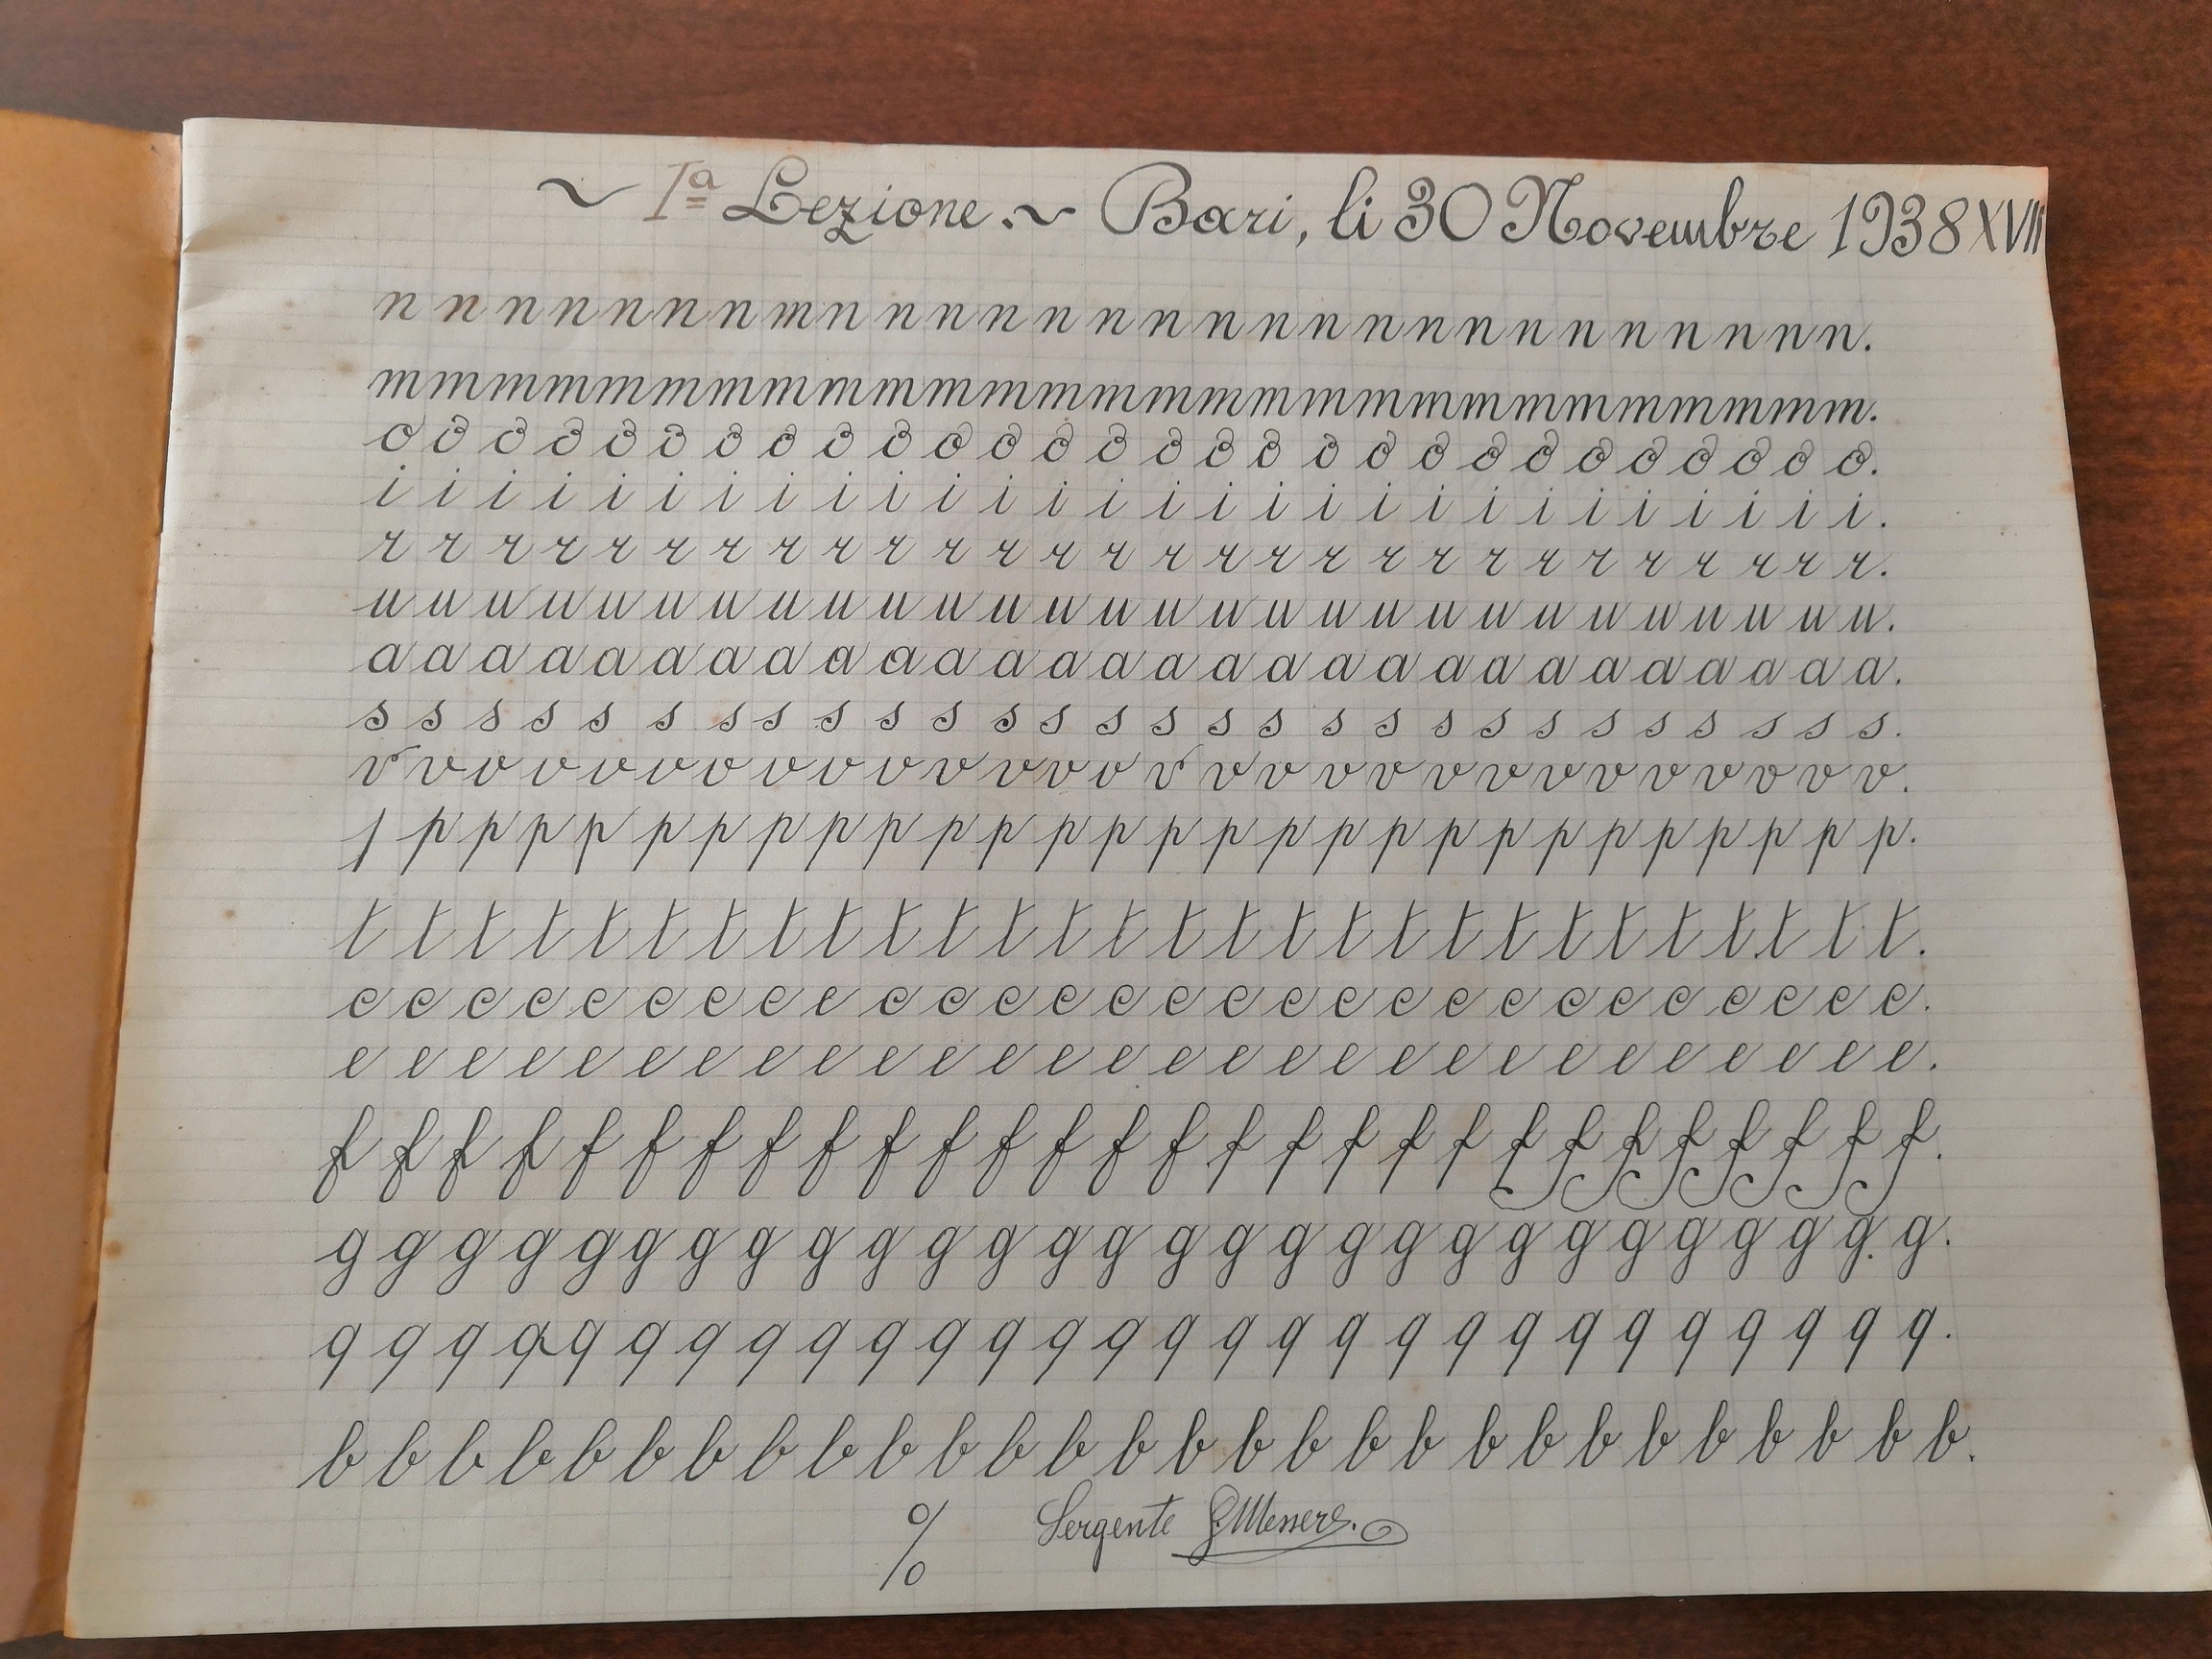 ~ Iª Lezione. ~ Bari, li 30 Novembre 1938 XVII
n n n n n n n m n n n n n n n n n n n n n n n n n n n n.
m m m m m m m m m m m m m m m m m m m m m m m m m m m m.
o o o o o o o o o o o o o o o o o o o o o o o o o o o o.
i i i i i i i i i i i i i i i i i i i i i i i i i i i i.
r r r r r r r r r r r r r r r r r r r r r r r r r r r r.
u u u u u u u u u u u u u u u u u u u u u u u u u u u u.
a a a a a a a a a a a a a a a a a a a a a a a a a a a a.
s s s s s s s s s s s s s s s s s s s s s s s s s s s s.
v v v v v v v v v v v v v v v v v v v v v v v v v v v v.
p p p p p p p p p p p p p p p p p p p p p p p p p p p p.
t t t t t t t t t t t t t t t t t t t t t t t t t t t t.
c c c c c c c c c c c c c c c c c c c c c c c c c c c c.
e e e e e e e e e e e e e e e e e e e e e e e e e e e e.
f f f f f f f f f f f f f f f f f f f f f f f f f f f f.
g g g g g g g g g g g g g g g g g g g g g g g g g g g. g.
q q q q q q q q q q q q q q q q q q q q q q q q q q q q.
b b b b b b b b b b b b b b b b b b b b b b b b b b b b.
% Sergente G. Messere.